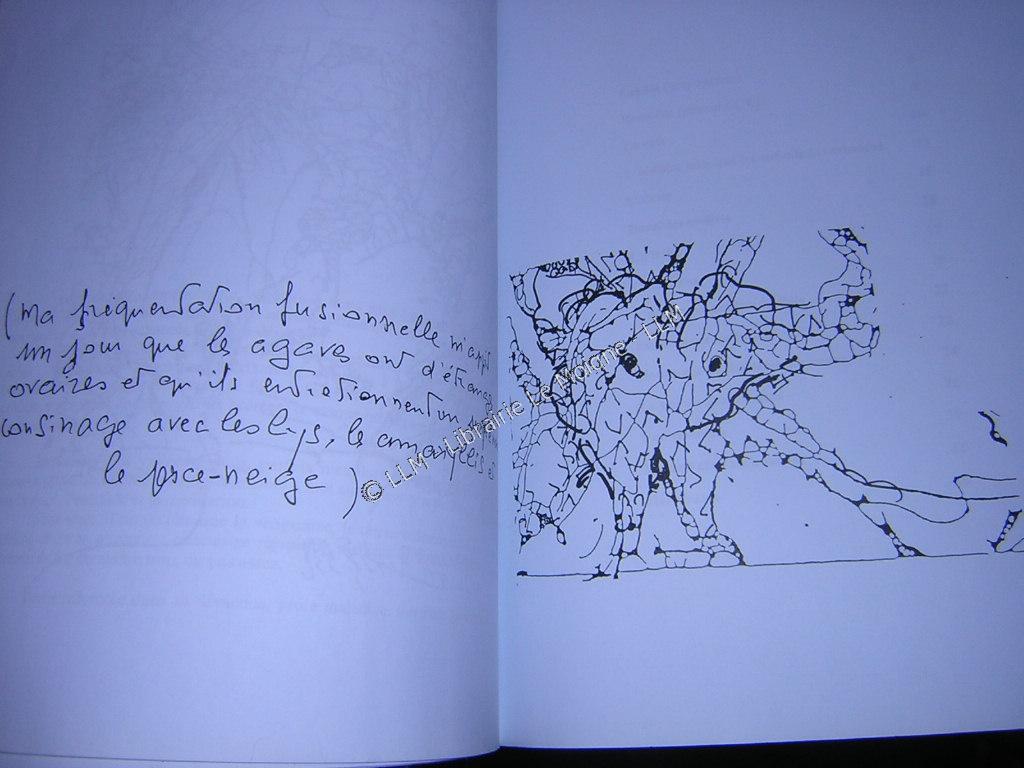 (Ma fréquentation fusionnelle m'apprit
un jour que les agaves ont d'étranges
ovaires et qu'ils entretiennent un
cousinage avec les lys, le amaryllis et
le perce-neige)
© LLM - Librairie Le Moigne - LLM